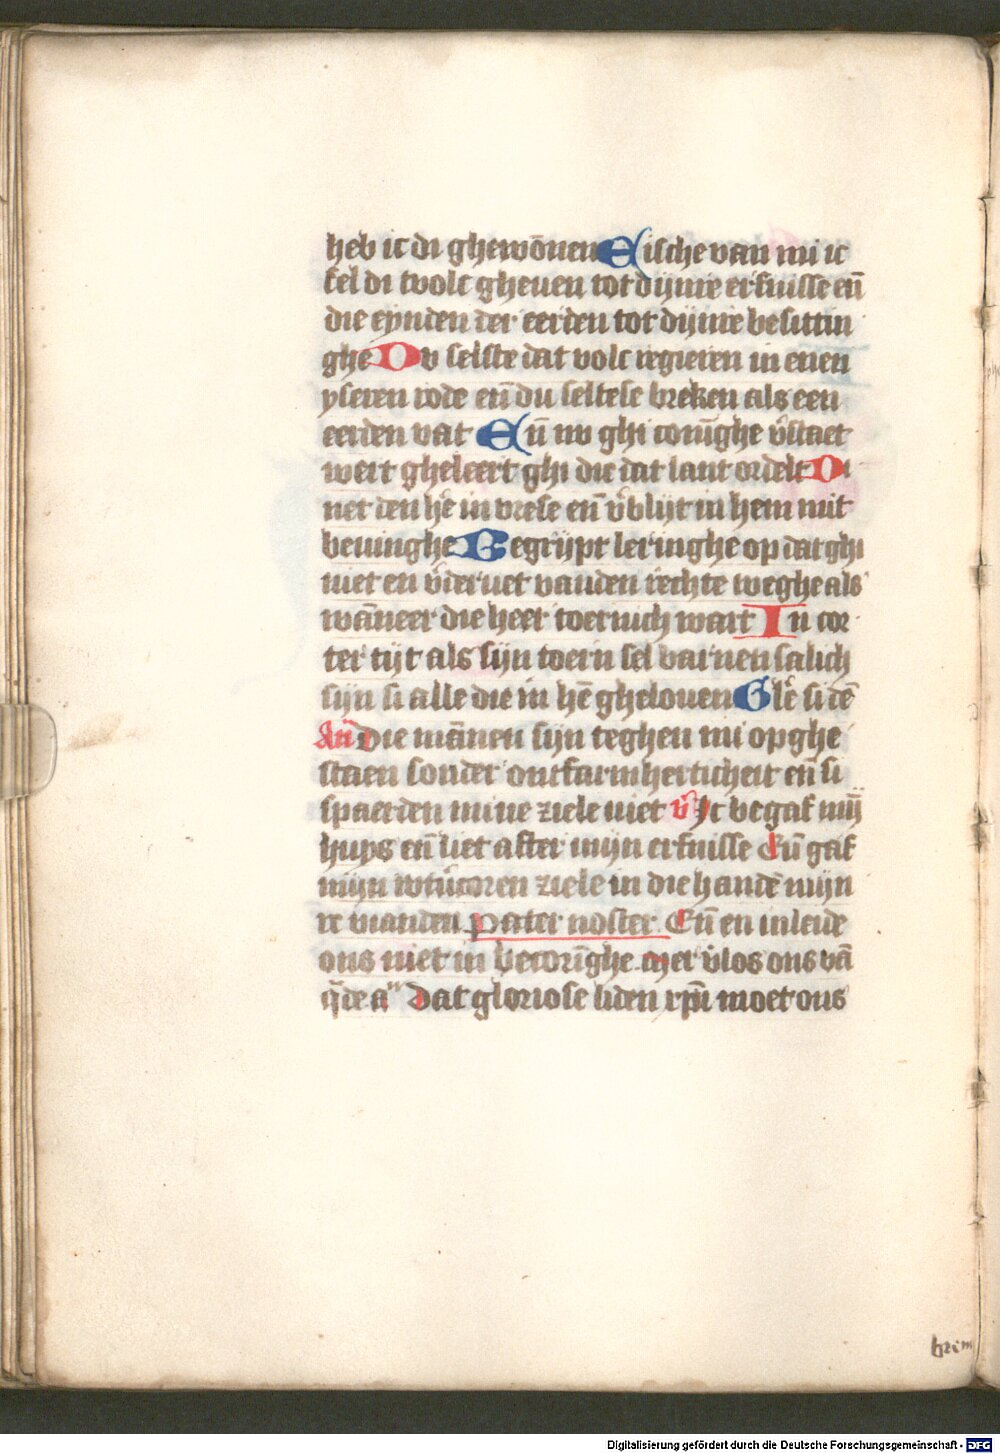 heb ic di ghewōnen Eische van mi ic
sel di tvolc gheuen tot dijnre erfnisse eñ
die eynden der eerden tot dijnre besittin
ghe Dv selste dat volc regieren in enen
yseren rode eñ du seltese breken als een
eerden vat Eñ nv ghi coniͫghe v̄staet
wert gheleert ghi die dat lant ordelt Di
net den hē in vrese eñ v̄blijt in hem mit
beuinghe Begrijpt leringhe op dat ghi
niet en v̄deruet vanden rechte weghe als
wāneer die heer toernich wart In cor
ter tijt als sijn toern sel barnen salich
sijn si alle die in hē ghelouen Glē si dē
An̄ Die mānen sijn teghen mi opghe
staen sonder ontfarmherticheit eñ si
spaerden mine ziele niet v̄ Ic begaf mij
huys eñ liet after mijn erfnisse Eñ gaf
mijn wtūcoren ziele in die handē mijn
re vianden pater noster Eñ en inleide
ons niet in becorīghe mer v̄los ons vā
q̄de a Dat gloriose liden xp̄i moet ons
Digitalisierung gefördert durch die Deutsche Forschungsgemeinschaft - DFG